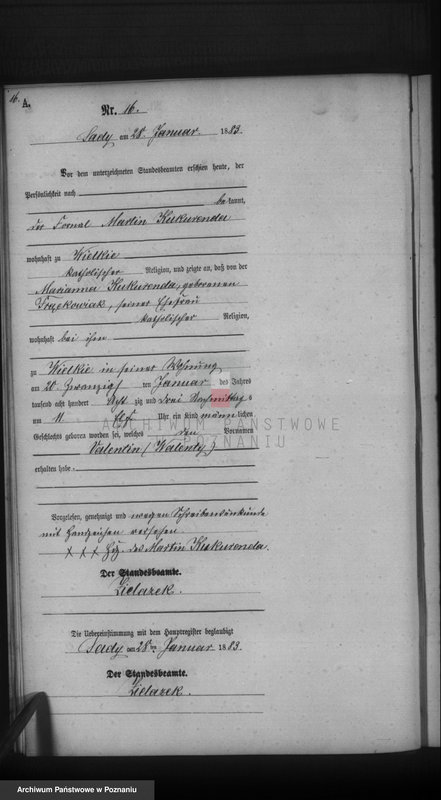 16.
A.
Nr. 16.
Sady am 28 Januar. 1883.
Vor dem unterzeichneten Standesbeamten erschien heute, der
Persönlichkeit nach
be kannt,
der Fornal Martin Kukurenda
wohnhaft zu Wielkie
katholischer Religion, und zeigte an, daß von der
Marianna Kukurenda, geborenen
Frąckowiak, seiner Ehefrau
katholischer Religion,
wohnhaft bei ihm
zu Wielkie in seiner Wohnung
am 20. zwanzigs ten Januar des Jahres
tausend acht hundert acht zig und drei Vormittags
um 11 elf Uhr ein Kind männ lichen
Geschlechts geboren worden sei, welches den Vornamen
Valentin (Walenty)
erhalten habe.
Vorgelesen, genehmigt und wegen Schreibensunkunde
mit Handzeichen versehen
x x x Hdz. des Martin Kukurenda.
Der Standesbeamte.
Zielazek.
Die Uebereinstimmung mit dem Hauptregister beglaubigt
Sady am 28ten Januar 1883.
Der Standesbeamte.
Zielazek.
ARCHIWUM PAŃSTWOWE
POZNANIU
Archiwum Państwowe w Poznaniu